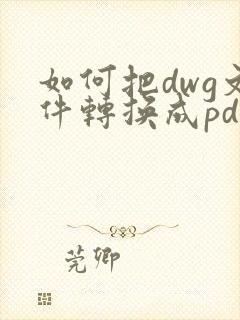 如何把dwg文
件轉換成pd
莞卿